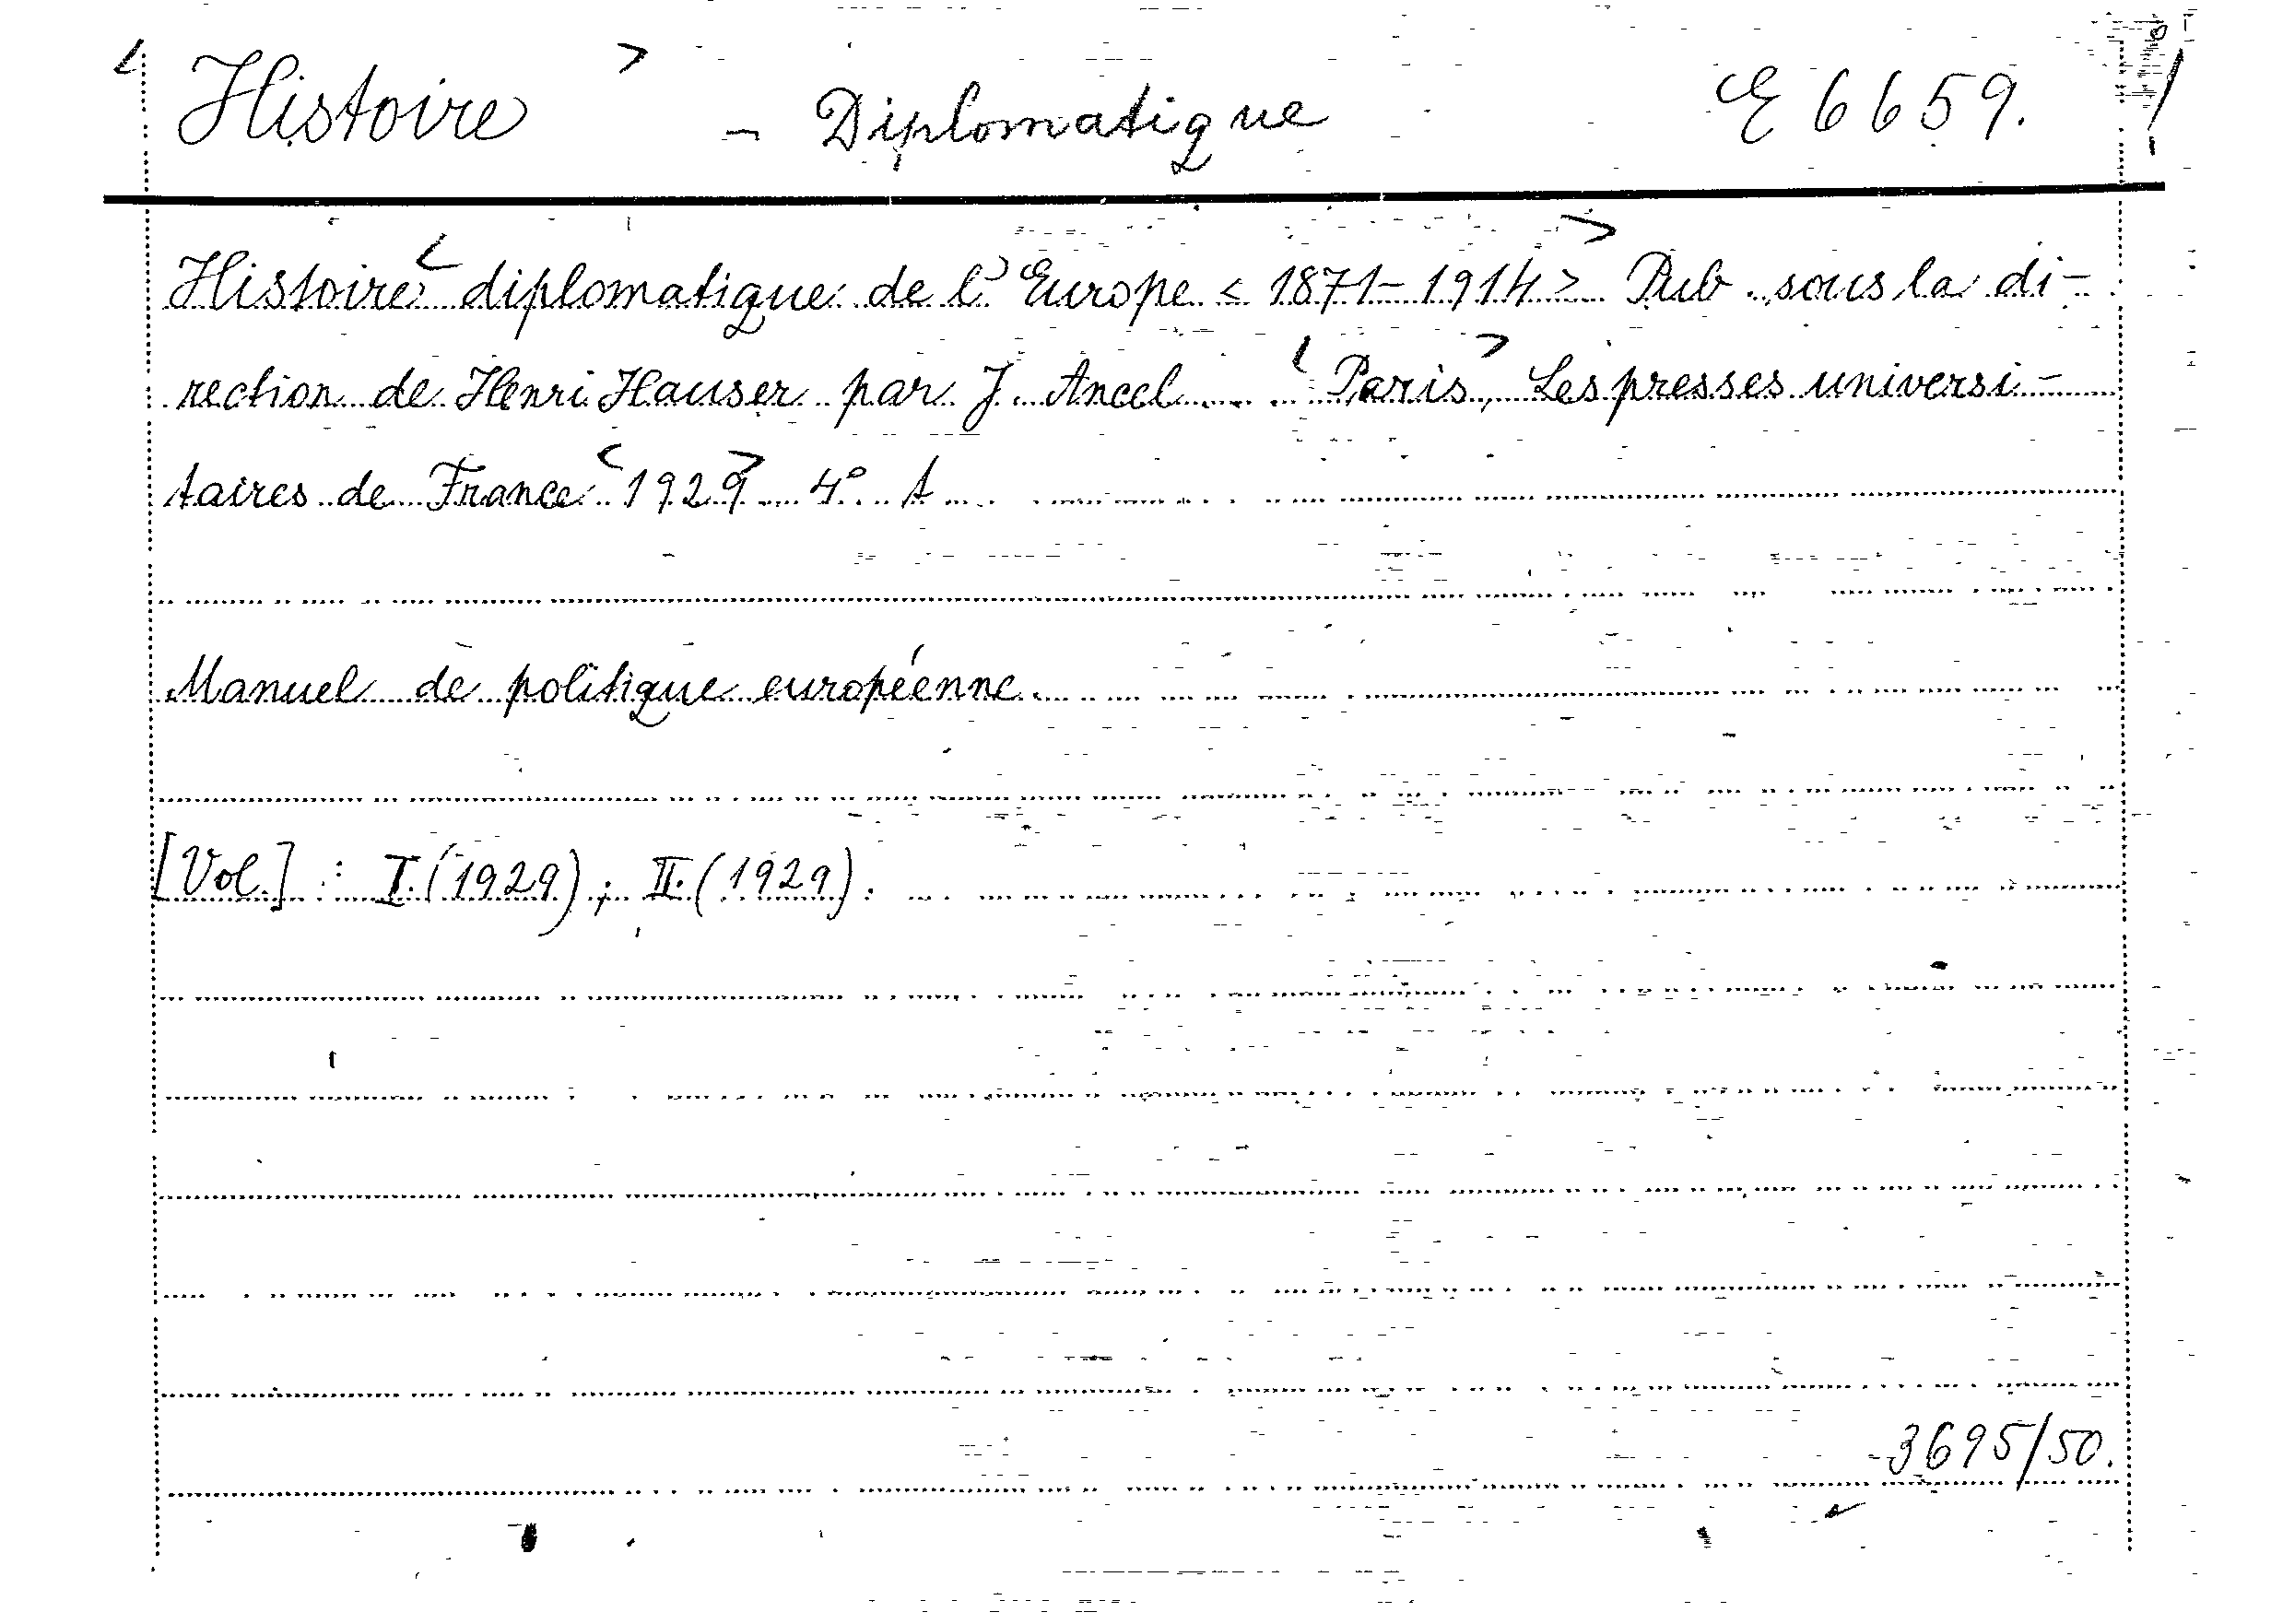 Histoire - Diplomatique E 6659.
Histoire diplomatique de l'Europe < 1871-1914 > Pub. sous la di-
rection de Henri Hauser par J. Ancel ... Paris, Les presses universi-
taires de France 1929 4°
Manuel de politique européenne.
[Vol.] : I. (1929); II. (1929).
3695/50.